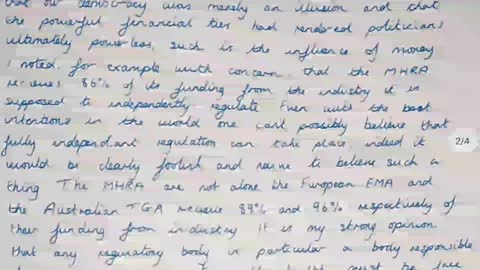 that our democracy was merely an illusion and that
the powerful financial ties had rendered politicians
ultimately powerless, such is the influence of money
I noted, for example with concern, that the MHRA
recieves 86% of its funding from the industry it is
supposed to independently regulate Even with the best
intentions in the world one cant possibly believe that
fully independant regulation can take place, indeed it
would be clearly foolish and naive to believe such a
thing The MHRA are not alone the European EMA and
the Australian TGA recieve 89% and 96% respectively of
their funding from industry It is my strong opinion
that any regulatory body in particular a body responsible
must be free
2/4